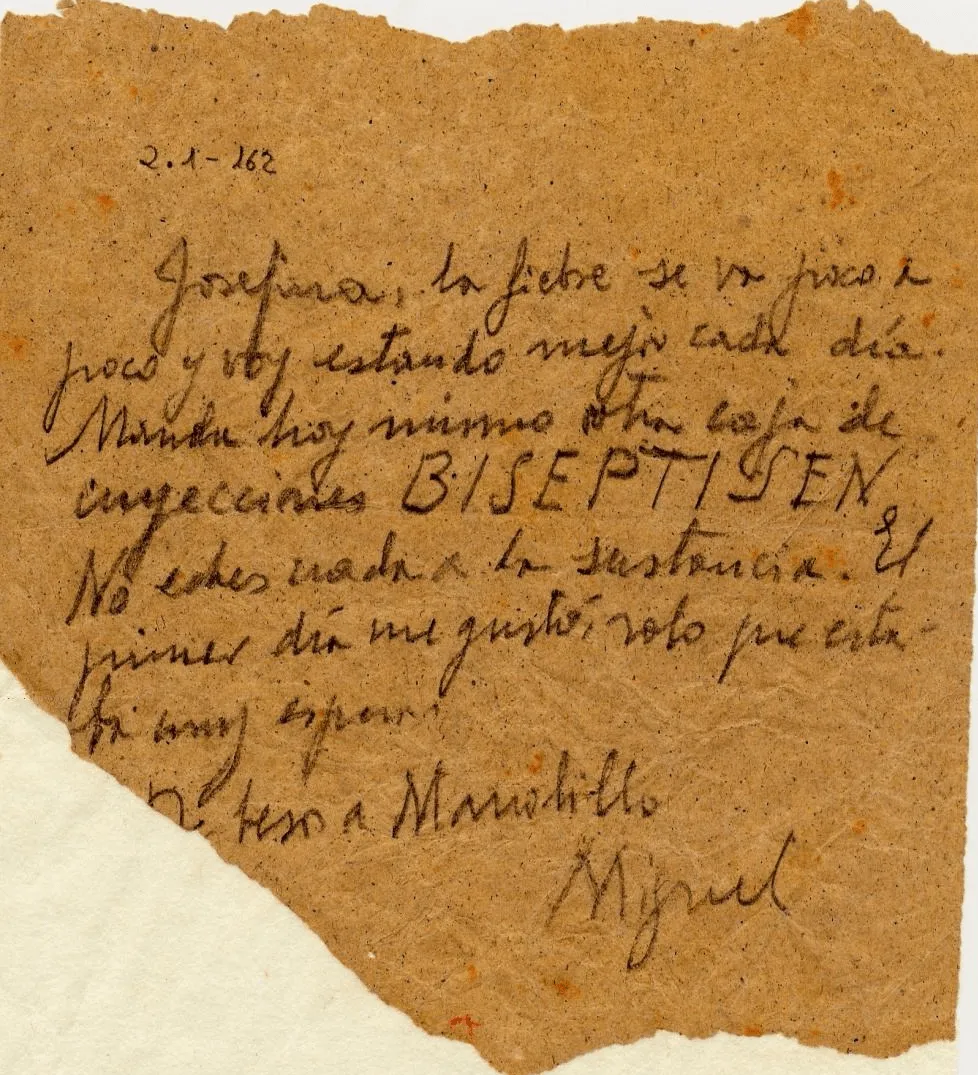 2.1-162
Josefina, la fiebre se va poco a
poco y voy estando mejor cada día.
Manda hoy mismo otra caja de
inyecciones BISEPTISEN
No eches nada a la sustancia. El
primer día me gustó, solo que esta-
ba muy espesa.
besos a Manolillo
Miguel